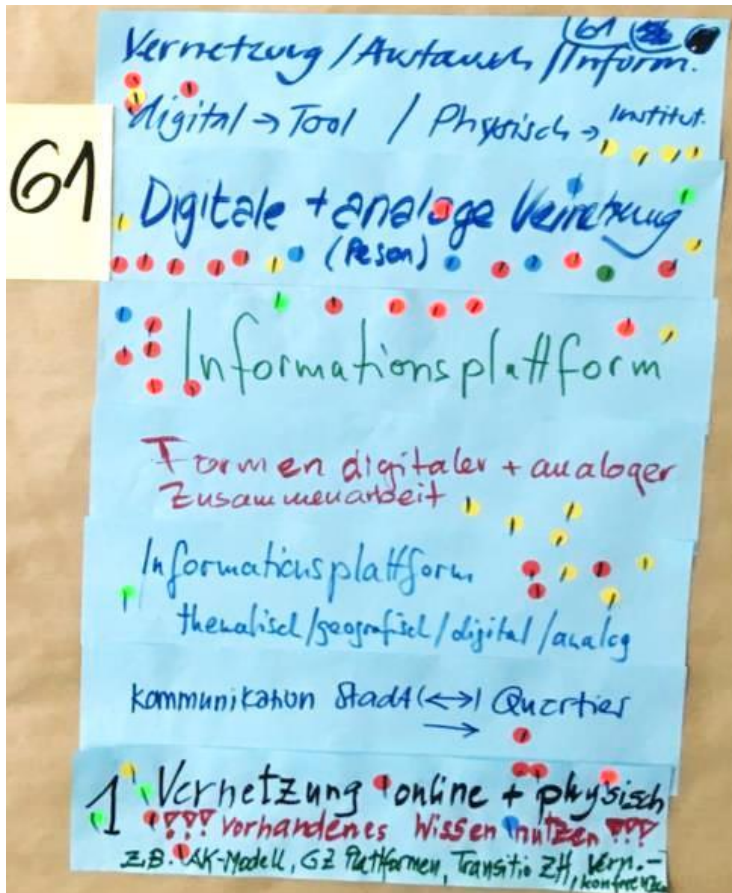 61
Vernetzung / Austausch / Inform.
digital → Tool / Physisch → Institut.
61
Digitale + analoge Vernetzung
(Person)
Informationsplattform
Formen digitaler + analoger
Zusammenarbeit
Informationsplattform
thematisch/geografisch/digital/analog
Kommunikation Stadt (↔) Quartier
→
1 Vernetzung online + physisch
!!! vorhandenes Wissen nutzen !!!
z.B. AK-Modell, GZ Plattformen, Transitio ZH, Vern.-